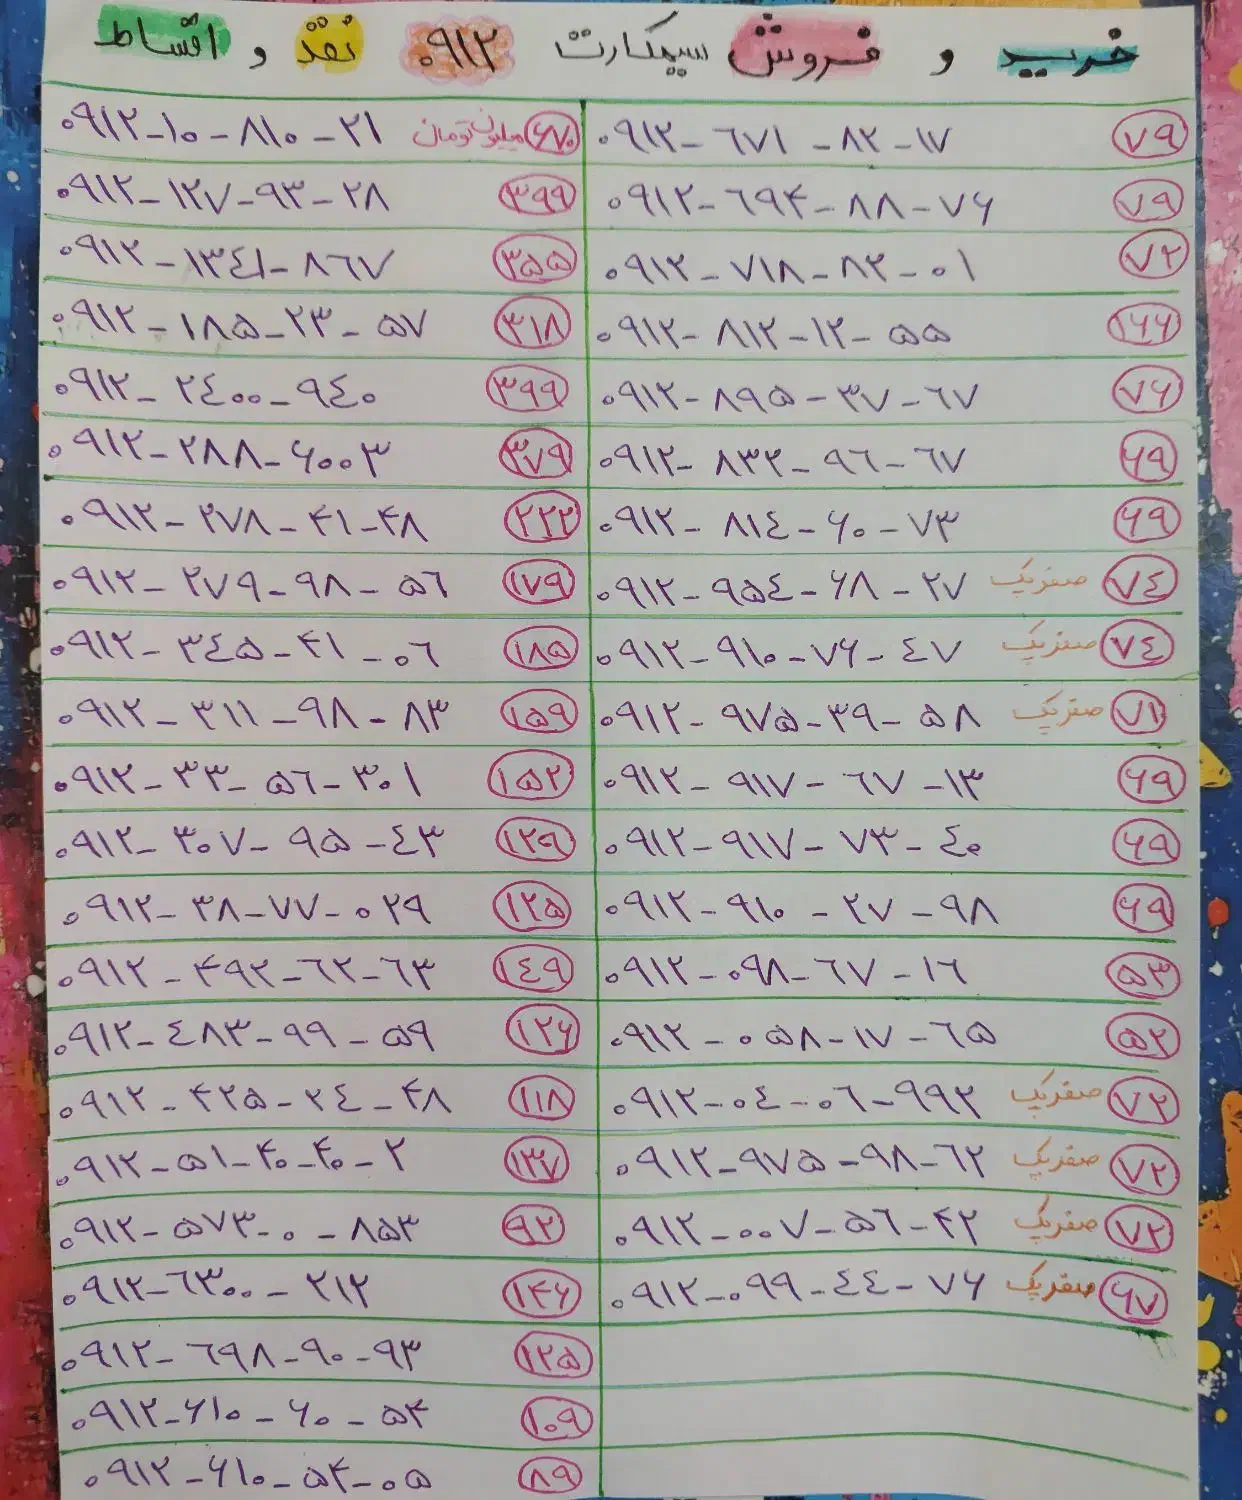 خرید و فروش سیمکارت ۰۹۱۲ نقد و اقساط
۰۹۱۲-۱۰-۸۱۰-۲۱ ۶۷۰ میلیون تومان
۰۹۱۲-۱۲۷-۹۳-۲۸ ۳۹۹
۰۹۱۲-۱۳۴۱-۸۶۷ ۳۵۵
۰۹۱۲-۱۸۵-۲۳-۵۷ ۳۱۸
۰۹۱۲-۲۴۰۰-۹۴۰ ۳۹۹
۰۹۱۲-۲۸۸-۶۰۰۳ ۳۷۹
۰۹۱۲-۲۷۸-۴۱-۴۸ ۲۲۲
۰۹۱۲-۲۷۹-۹۸-۵۶ ۱۷۹
۰۹۱۲-۳۴۵-۴۱-۰۶ ۱۸۵
۰۹۱۲-۳۱۱-۹۸-۸۳ ۱۵۹
۰۹۱۲-۳۳-۵۶-۳۰۱ ۱۵۲
۰۹۱۲-۳۰۷-۹۵-۴۳ ۱۲۹
۰۹۱۲-۳۸-۷۷-۰۲۹ ۱۲۵
۰۹۱۲-۴۹۲-۶۲-۶۳ ۱۴۹
۰۹۱۲-۴۸۳-۹۹-۵۹ ۱۲۶
۰۹۱۲-۴۲۵-۲۴-۴۸ ۱۱۸
۰۹۱۲-۵۱-۴۰-۴۰-۲ ۱۳۷
۰۹۱۲-۵۷۳-۰-۸۵۳ ۹۲
۰۹۱۲-۶۳۰۰-۲۱۲ ۱۴۶
۰۹۱۲-۶۹۸-۹۰-۹۳ ۱۲۵
۰۹۱۲-۶۱۰-۶۰-۵۴ ۱۰۹
۰۹۱۲-۶۱۰-۵۴-۰۵ ۸۹
۰۹۱۲-۶۷۱-۸۲-۱۷ ۷۹
۰۹۱۲-۶۹۴-۸۸-۷۶ ۷۹
۰۹۱۲-۷۱۸-۸۲-۰۱ ۷۲
۰۹۱۲-۸۱۲-۱۲-۵۵ ۱۶۶
۰۹۱۲-۸۹۵-۳۷-۶۷ ۷۶
۰۹۱۲-۸۳۲-۹۶-۶۷ ۶۹
۰۹۱۲-۸۱۴-۶۰-۷۳ ۶۹
۰۹۱۲-۹۵۴-۶۸-۲۷ صفریک ۷۴
۰۹۱۲-۹۱۰-۷۶-۴۷ صفریک ۷۴
۰۹۱۲-۹۷۵-۳۹-۵۸ صفریک ۷۱
۰۹۱۲-۹۱۷-۶۷-۱۳ ۶۹
۰۹۱۲-۹۱۷-۷۳-۴۰ ۶۹
۰۹۱۲-۹۱۰-۲۷-۹۸ ۶۹
۰۹۱۲-۰۹۸-۶۷-۱۶ ۵۳
۰۹۱۲-۰۵۸-۱۷-۶۵ ۵۲
۰۹۱۲-۰۴-۰۶-۹۹۲ صفریک ۷۲
۰۹۱۲-۹۷۵-۹۸-۶۲ صفریک ۷۲
۰۹۱۲-۰۰۷-۵۶-۴۲ صفریک ۷۲
۰۹۱۲-۰۹۹-۴۴-۷۶ صفریک ۶۷